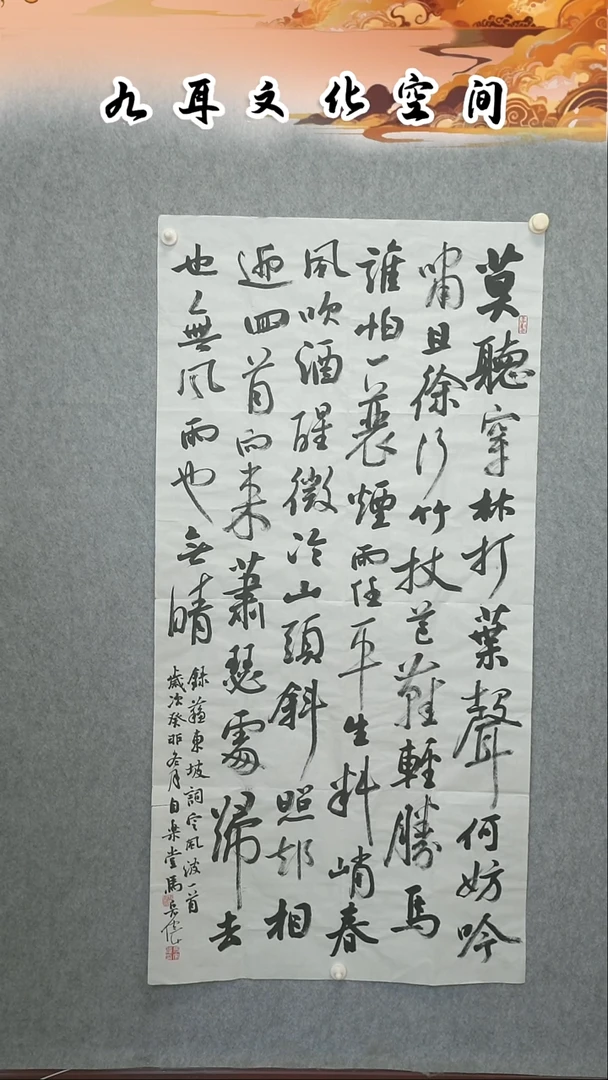 九耳文化空间
莫聽穿林打葉聲何妨吟
嘯且徐行竹杖芒鞋輕勝馬
誰怕一蓑煙雨任平生料峭春
風吹酒醒微冷山頭斜照却相
迎回首向來蕭瑟處歸去
也無風雨也无晴
錄蘇東坡詞定風波一首
歲次癸卯冬月自樂堂馬